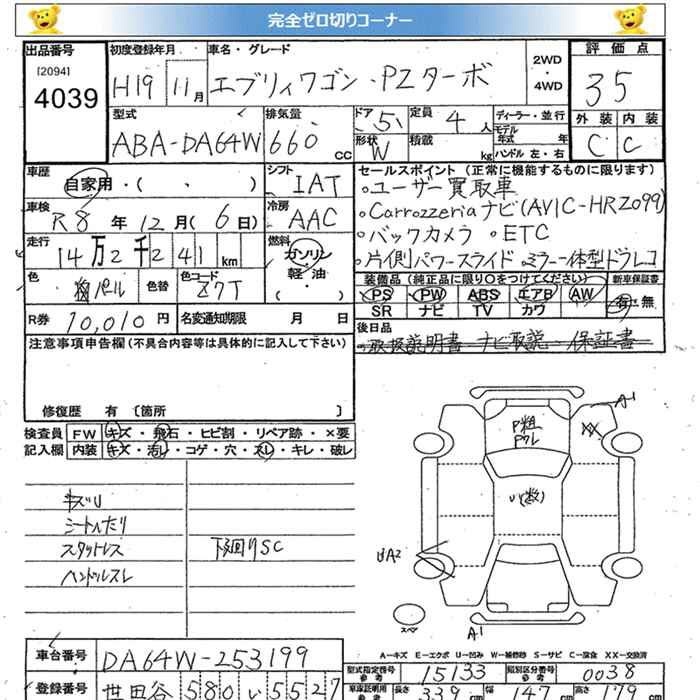 完全ゼロ切りコーナー
出品番号 初度登録年月 車名・グレード 評価点
[2094] 4039
H19年 11月 エブリィワゴン・PZターボ 2WD・4WD 35
型式 排気量 ドア 定員 ディーラー・並行 外装 内装
ABA-DA64W 660cc 5 4人 モデル年式 年 C C
形状 W 積載 kg ハンドル 左・右
車歴 シフト セールスポイント (正常に機能するものに限ります)
自家用・( ・ ) IAT 。ユーザー買取車
車検 冷房 。Carrozzeriaナビ(AVIC-HRZ099)
R8年12月(6日) AAC
走行 燃料 。バックカメラ 。ETC
14万2千241km ガソリン 。片側パワースライド 。ミラー一体型ドラレコ
軽・油
( ・ )
色 色替 色コード 装備品(純正品に限り○をつけてください) 新車保証書
パール Z7T PS PW ABS エアB AW 有・無
SR ナビ TV カワ
R券 10,010円 名変通知期限 月 日
後日品
取扱説明書 ナビ取説 保証書
注意事項申告欄(不具合内容等は具体的に記入して下さい)
修復歴 有〔箇所 〕
検査員記入欄 FW キズ・飛石・ヒビ割・リペア跡・×要
内装 キズ・汚レ・コゲ・穴・スレ・キレ・破レ
キズU
シートへたり
スタットレス 下回りSC
ハンドルスレ
A1
P粗
Pワレ
XX
U(数)
UA2
スペア
A1
A－キズ E－エクボ U－凹み W－補修跡 S－サビ C－腐食 XX－交換済
車台番号 DA64W-253199 型式指定番号 参考 15133 類別区分番号 参考 0038
登録番号 世田谷 580 い 5527 車庫証明用 参考 長さ 339cm 幅 147cm 高さ